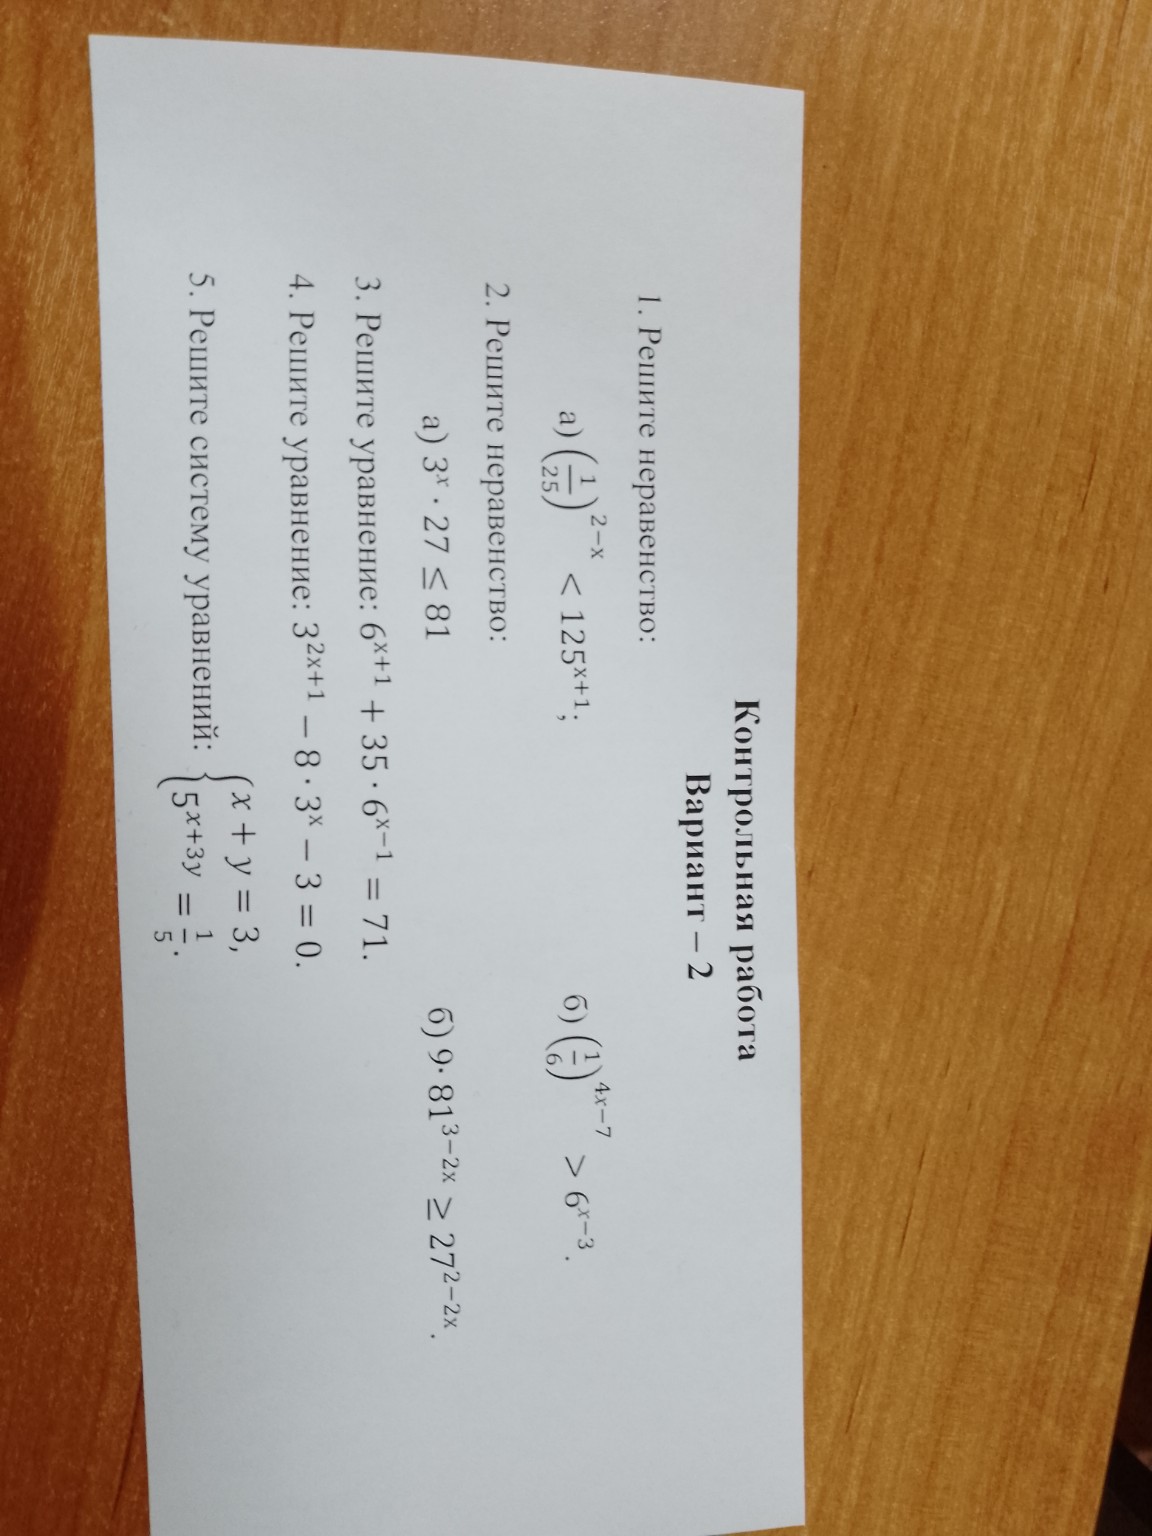 Контрольная работа
Вариант – 2
1. Решите неравенство:
а) (1/25)^(2−x) < 125^(x+1); б) (1/6)^(4x−7) > 6^(x−3).
2. Решите неравенство:
а) 3^x · 27 ≤ 81 б) 9 · 81^(3−2x) ≥ 27^(2−2x).
3. Решите уравнение: 6^(x+1) + 35 · 6^(x−1) = 71.
4. Решите уравнение: 3^(2x+1) − 8 · 3^x − 3 = 0.
5. Решите систему уравнений: { x + y = 3,
5^(x+3y) = 1/5.